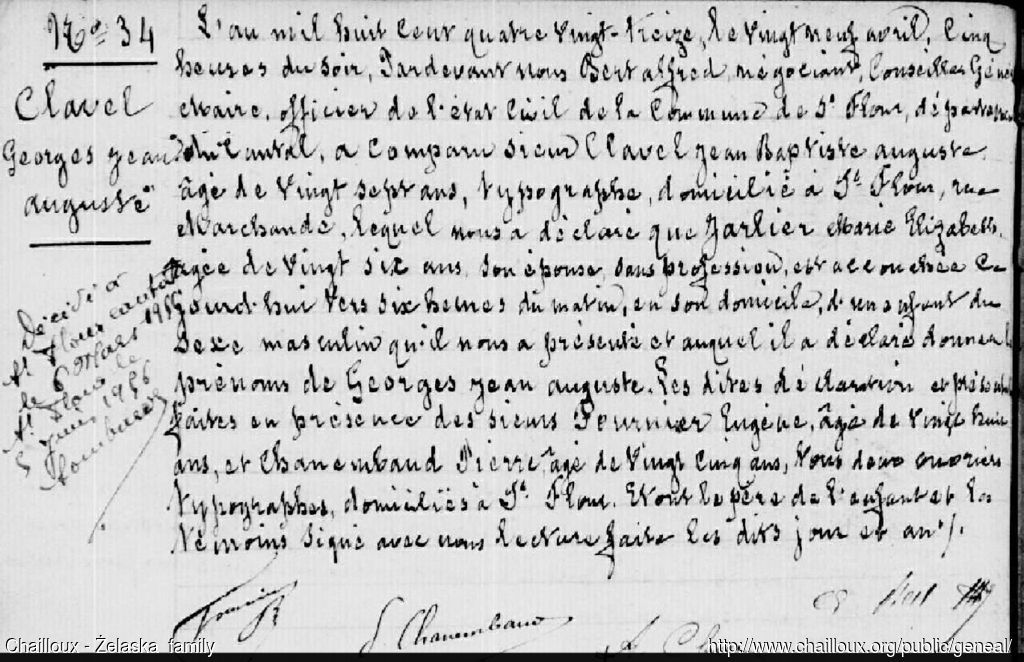 No 34
Clavel
Georges Jean
auguste
Décédé à
St Flour Cantal
le 6 Mars 1956
St Flour le
5 Juin 1956
L'an mil huit cent quatre vingt-treize, le vingt neuf avril, cinq
heures du soir, Pardevant nous Bert alfred, négociant, Conseiller Géné
Maire, officier de l'état civil de la Commune de St Flour, départeme
du Cantal, a comparu sieur Clavel Jean Baptiste auguste
âgé de vingt sept ans, typographe, domicilié à St Flour, rue
Marchande, lequel nous a déclaré que Jarlier Marie Elizabeth,
agée de vingt six ans, son épouse, sans profession, est accouchée ce
jourd'hui vers six heures du matin, en son domicile, d'un enfant du
sexe masculin qu'il nous a présenté et auquel il a déclaré donner l
prénoms de Georges Jean auguste. Les dites déclaration et présent
faites en présence des sieurs Fournier Eugène, âgé de vingt huit
ans, et Chanembaud Pierre, âgé de vingt cinq ans, tous deux ouvriers
typographes, domiciliés à St Flour. Et ont le père de l'enfant et les
témoins signé avec nous lecture faite les dits jour et an ./.
Fournier
P. Chanembaud
Chailloux - Żelaska family
http://www.chailloux.org/public/geneal/